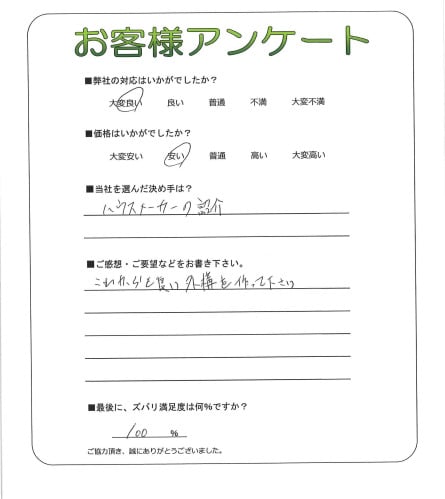 お客様アンケート
■弊社の対応はいかがでしたか？
大変良い 良い 普通 不満 大変不満
■価格はいかがでしたか？
大変安い 安い 普通 高い 大変高い
■当社を選んだ決め手は？
ハウスメーカーの紹介
■ご感想・ご要望などをお書き下さい。
これからも良い外構を作って下さい
■最後に、ズバリ満足度は何％ですか？
100 ％
ご協力頂き、誠にありがとうございました。